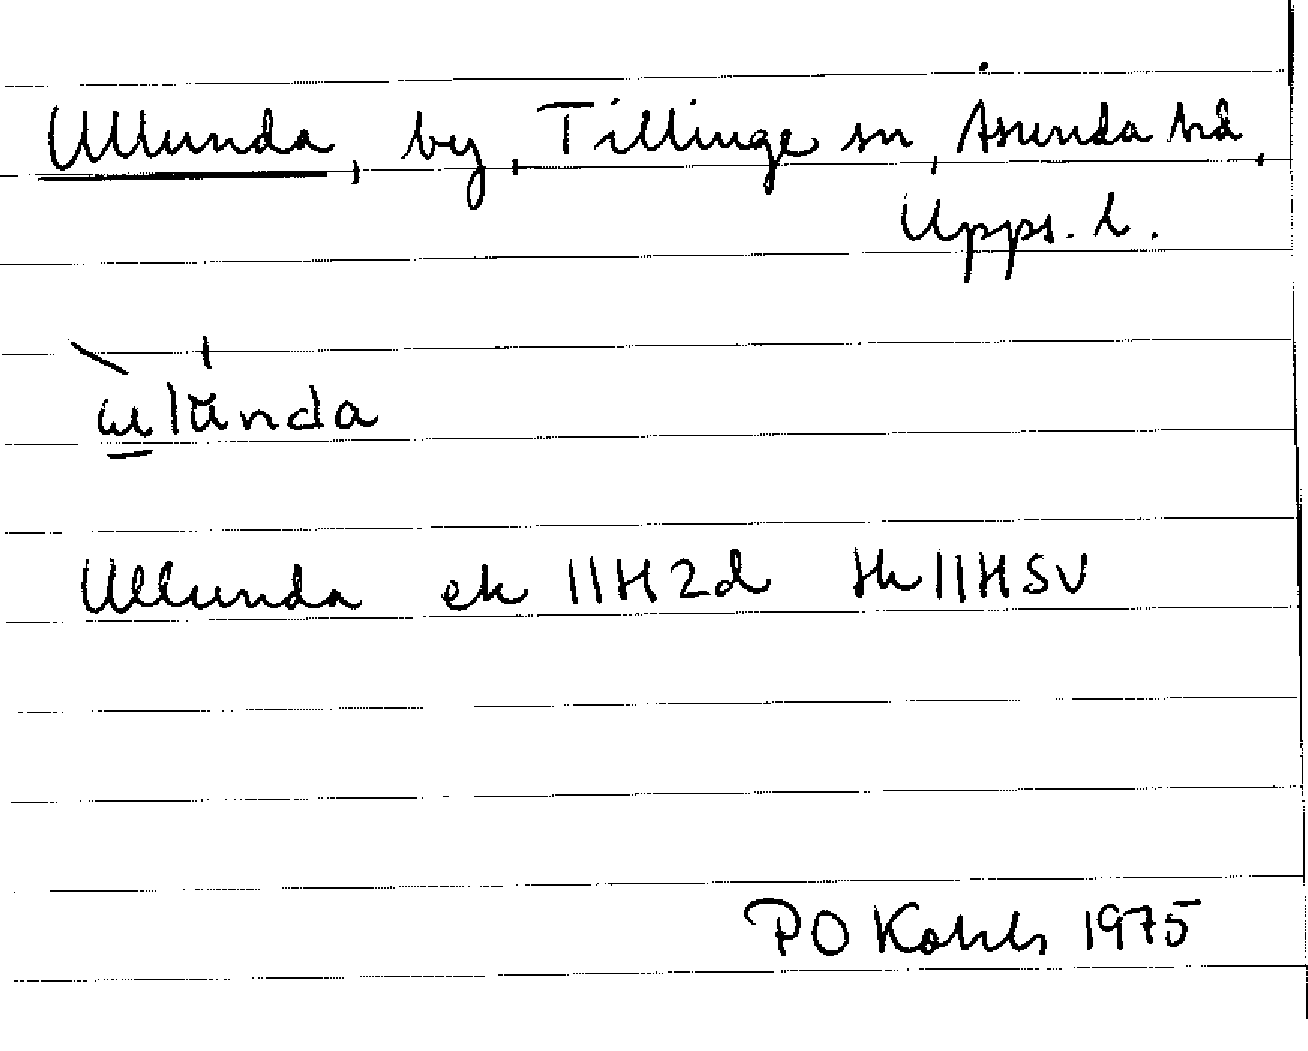 Ullunda, by, Tillinge sn, Åsunda hd,
Upps. l.
ɯlŭnda
Ullunda ek 11H2d 11HSV
PO 1975